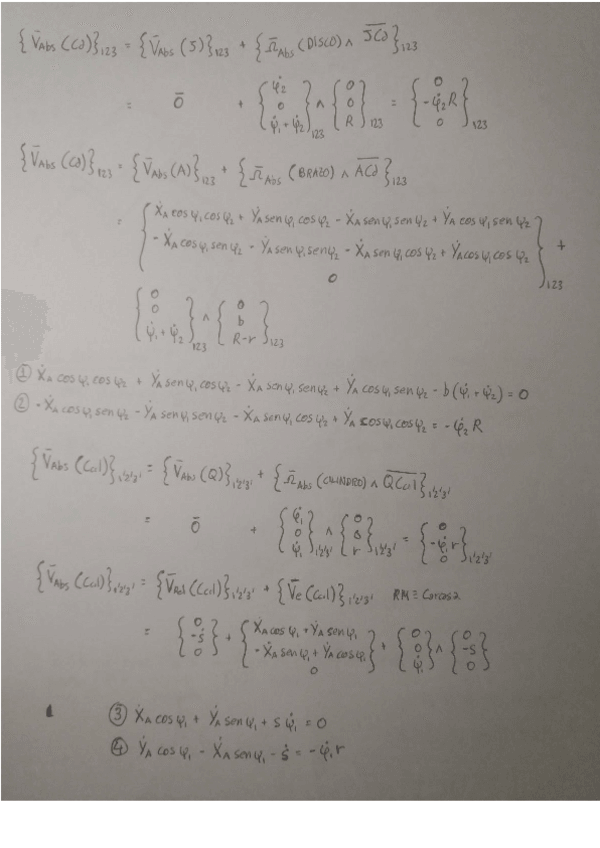 {V̄Abs (Cd)}123 = {V̄Abs (J)}123 + {Ω̄Abs (DISCO) ∧ J̅C̅d̅}123
= 0̄ + {φ̇2 0 ψ̇1+ψ̇2}123 ∧ {0 0 R}123 = {0 -φ̇2 R 0}123
{V̄Abs (Cd)}123 = {V̄Abs (A)}123 + {Ω̄Abs (BRAZO) ∧ A̅C̅d̅}123
= {ẊA cos ψ1 cos ψ2 + ẎA sen ψ1 cos ψ2 - ẊA sen ψ1 sen ψ2 + ẎA cos ψ1 sen ψ2
- ẊA cos ψ1 sen ψ2 - ẎA sen ψ1 sen ψ2 - ẊA sen ψ1 cos ψ2 + ẎA cos ψ1 cos ψ2
0}123 +
{0 0 ψ̇1+ψ̇2}123 ∧ {0 b R-r}123
① ẊA cos ψ1 cos ψ2 + ẎA sen ψ1 cos ψ2 - ẊA sen ψ1 sen ψ2 + ẎA cos ψ1 sen ψ2 - b(ψ̇1+ψ̇2) = 0
② -ẊA cos ψ1 sen ψ2 - ẎA sen ψ1 sen ψ2 - ẊA sen ψ1 cos ψ2 + ẎA cos ψ1 cos ψ2 = -φ̇2 R
{V̄Abs (Ccil)}1'2'3' = {V̄Abs (Q)}1'2'3' + {Ω̄Abs (CILINDRO) ∧ Q̅C̅c̅i̅l̅}1'2'3'
= 0̄ + {φ̇1 0 ψ̇1}1'2'3' ∧ {0 0 r}1'2'3' = {0 -φ̇1 r 0}1'2'3'
{V̄Abs (Ccil)}1'2'3' = {V̄Rel (Ccil)}1'2'3' + {V̄e (Ccil)}1'2'3' RM ≡ Carcasa
= {0 -ṡ 0} + {ẊA cos ψ1 + ẎA sen ψ1 -ẊA sen ψ1 + ẎA cos ψ1 0} + {0 0 ψ̇1} ∧ {0 -s 0}
③ ẊA cos ψ1 + ẎA sen ψ1 + s ψ̇1 = 0
④ ẎA cos ψ1 - ẊA sen ψ1 - ṡ = -φ̇1 r